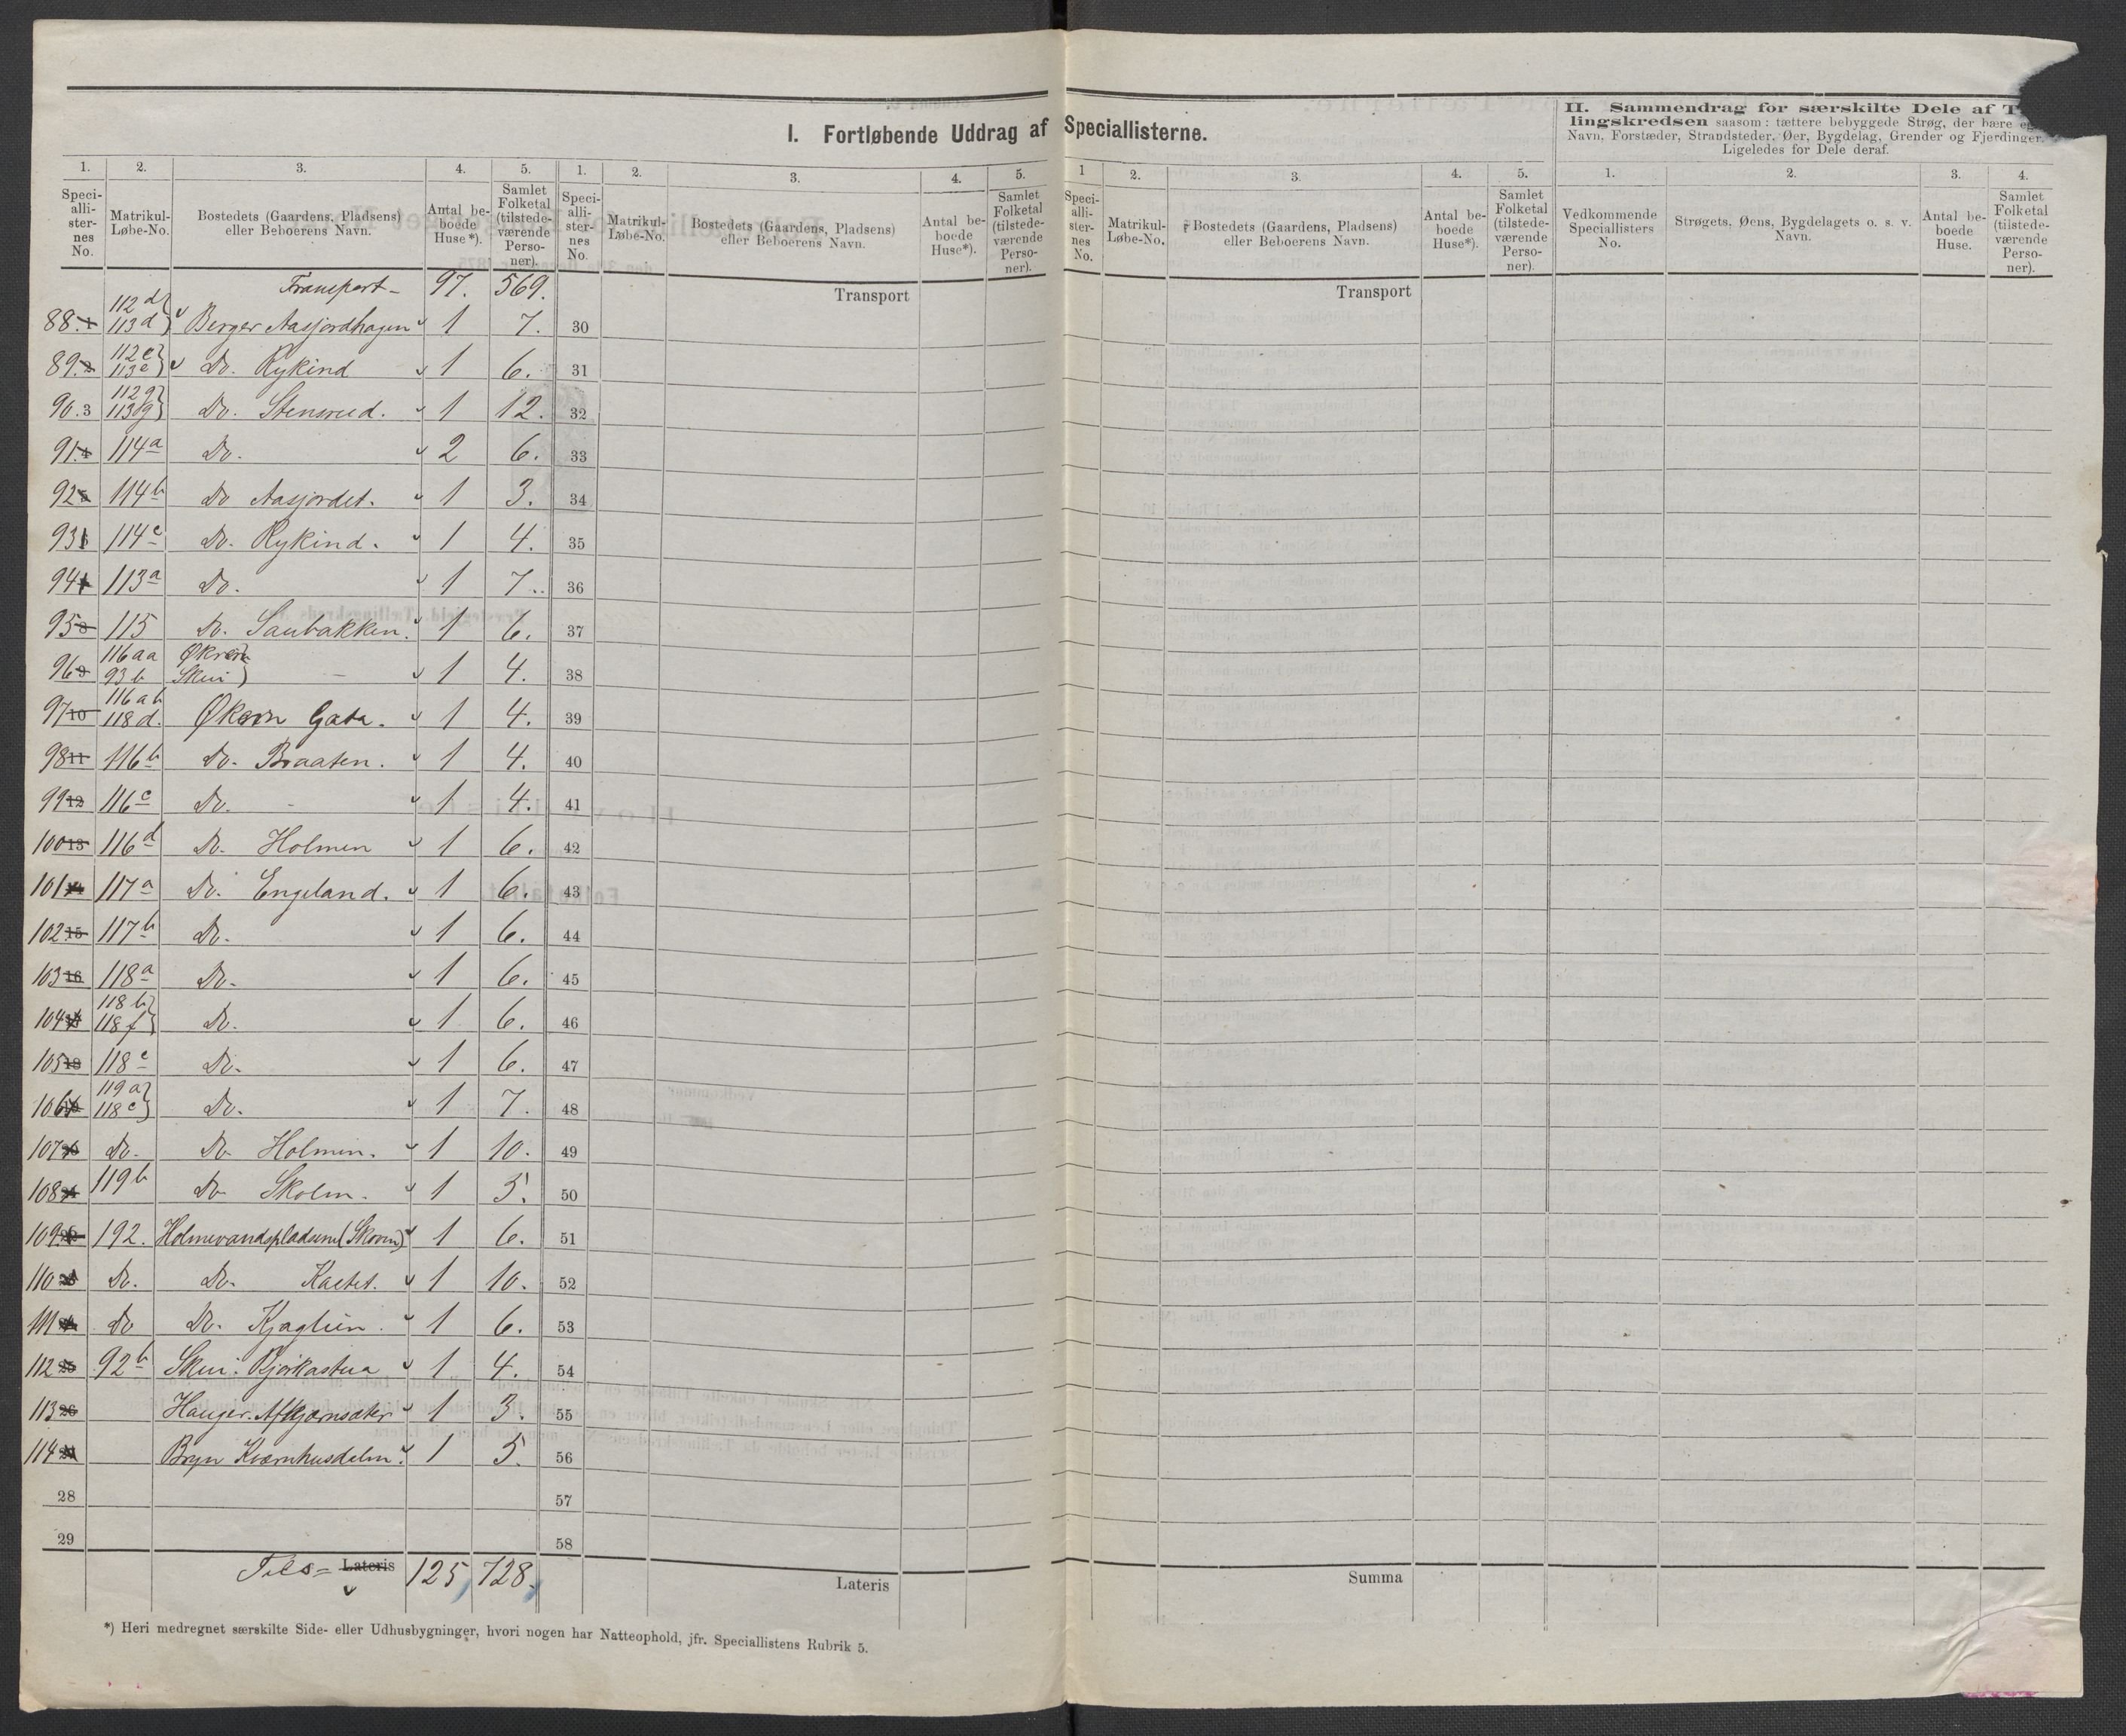 I. Fortløbende Uddrag af Speciallisterne.
II. Sammendrag for særskilte Dele af
lingskredsen saasom: tættere bebyggede Strøg, der bære
Navn, Forstæder, Strandsteder, Øer, Bygdelag, Grender og Fjerdinger.
Ligeledes for Dele deraf.
1. 2. 3. 4. 5. 1. 2. 3. 4. 5. 1 2. 3. 4. 5. 1. 2. 3. 4.
Speci-alli-ster-nes No. Matrikul-Løbe-No. Bostedets (Gaardens, Pladsens) eller Beboerens Navn. Antal be-boede Huse*). Samlet Folketal (tilstede-værende Perso-ner).
Speci-alli-ster-nes No. Matrikul-Løbe-No. Bostedets (Gaardens, Pladsens) eller Beboerens Navn. Antal be-boede Huse*). Samlet Folketal (tilstede-værende Perso-ner).
Speci-alli-ster-nes No. Matrikul-Løbe-No. Bostedets (Gaardens, Pladsens) eller Beboerens Navn. Antal be-boede Huse*). Samlet Folketal (tilstede-værende Perso-ner).
Vedkommende Speciallisters No. Strøgets, Øens, Bygdelagets o. s. v. Navn. Antal be-boede Huse. Samlet Folketal (tilstede-værende Perso-ner).
Transport - 97. 569. Transport Transport
88. 112 d 113 d Berger Aasjordhagen 1 7. 30
89. 112 e 113 e Do. Rykind 1 6. 31
90. 3 112 g 113 g Do. Stensrud. 1 12. 32
91. 114 a Do. 2 6. 33
92 114 b Do Aasjordet. 1 3. 34
93 114 c Do. Rykind. 1 4. 35
94 113 a Do. 1 7. 36
95 115 Do. Saubakken. 1 6. 37
96 116 aa 93 b Økern Skui - 1 4. 38
97 10 116 ab 118 d. Økern Gata. 1 4. 39
98 11 116 b Do. Braaten. 1 4. 40
99 12 116 c Do. - 1 4. 41
100 13 116 d Do. Holmen 1 6. 42
101 117 a Do. Engeland. 1 6. 43
102 15 117 b Do. 1 6. 44
103 16 118 a Do. 1 6. 45
104 118 b 118 f Do. 1 6. 46
105 18 118 c Do. 1 6. 47
106 119 a 118 e Do. 1 7. 48
107 Do. Do. Holmen. 1 10. 49
108 119 b Do Skolm. 1 5. 50
109 192. Holmevandspladsene (Skoven) 1 6. 51
110 Do. Do. Kastet. 1 10. 52
111 Do Do. Kjaglien. 1 6. 53
112 25 92 b Skui: Bjørkastua 1 4. 54
113 26 Hauger. Afkjærnsæter 1 3. 55
114 Bryn Kværnhusdelen. 1 5. 56
28 57
29 58
Tils= Lateris 125 728. Lateris Summa
*) Heri medregnet særskilte Side- eller Udhusbygninger, hvori nogen har Natteophold, jfr. Speciallistens Rubrik 5.